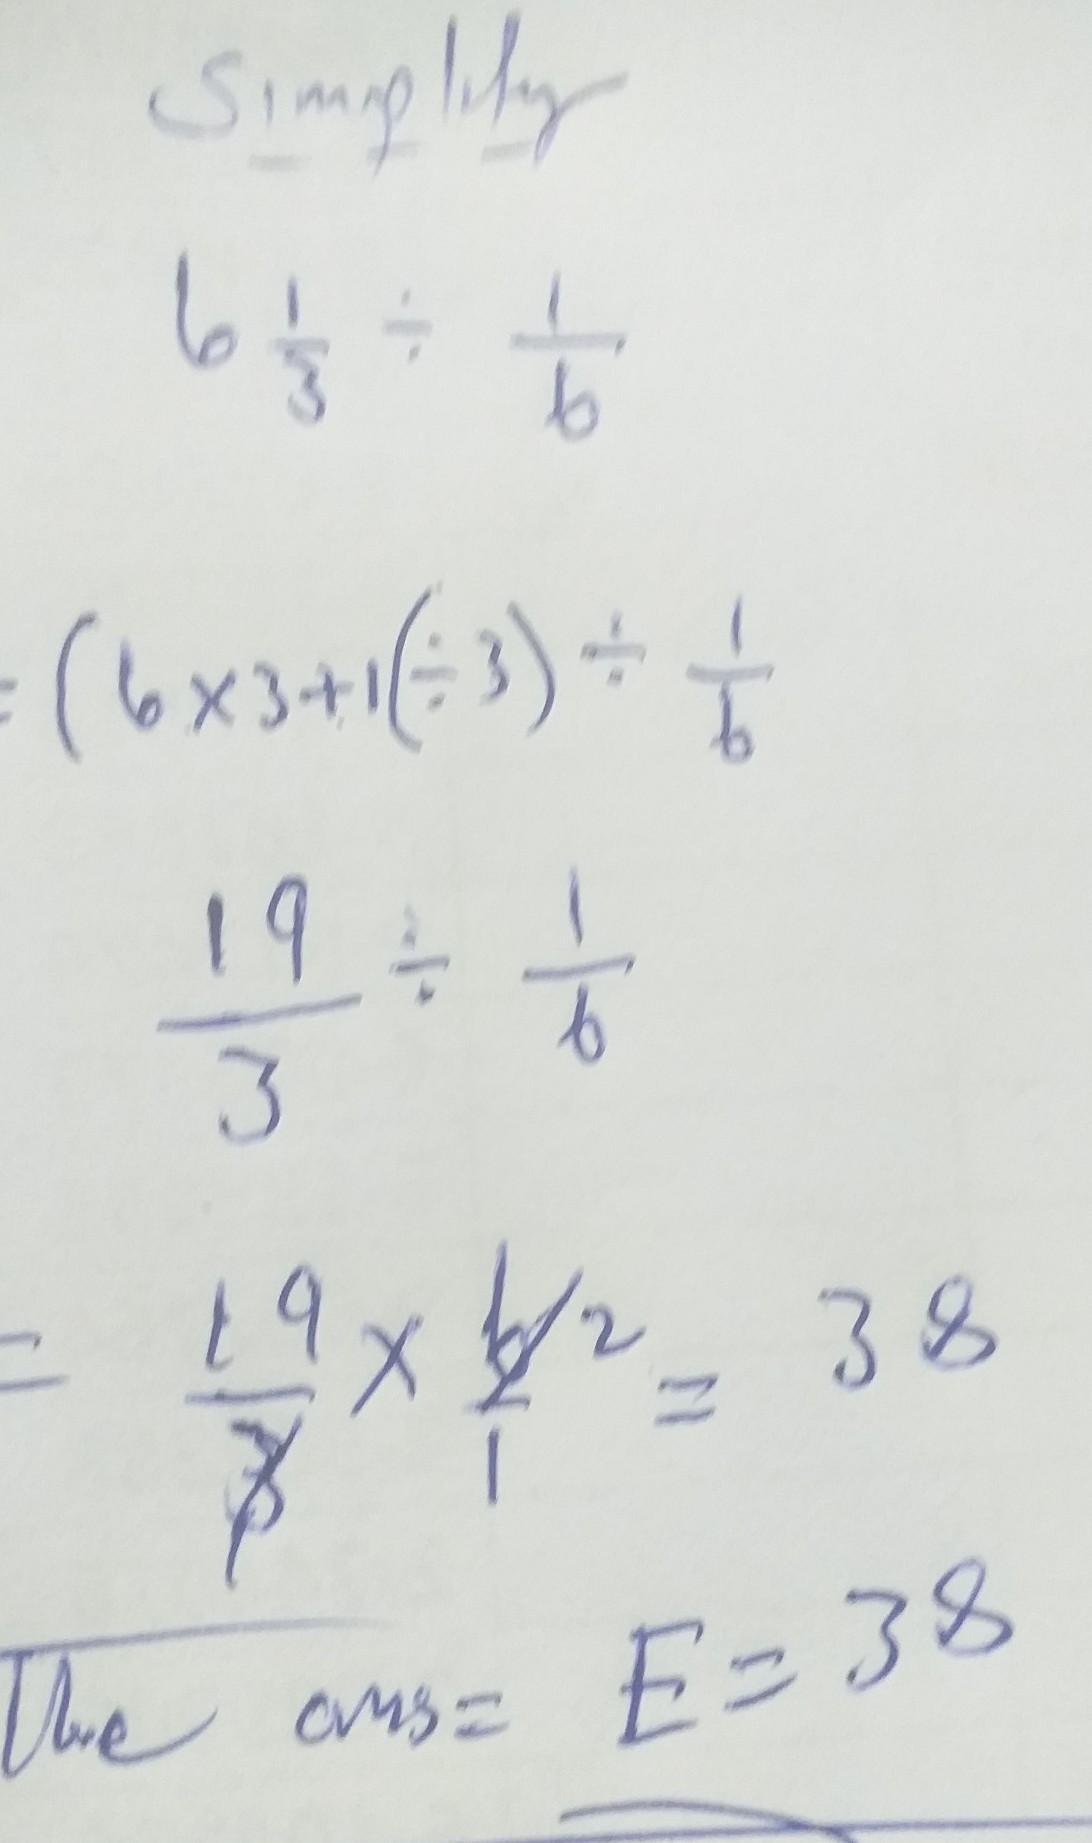 Simplify
6 1/3 ÷ 1/6
= (6 x 3 + 1(÷ 3) ÷ 1/6
19/3 ÷ 1/6
= 19/3 x 6/1 2 = 38
The ans = E = 38